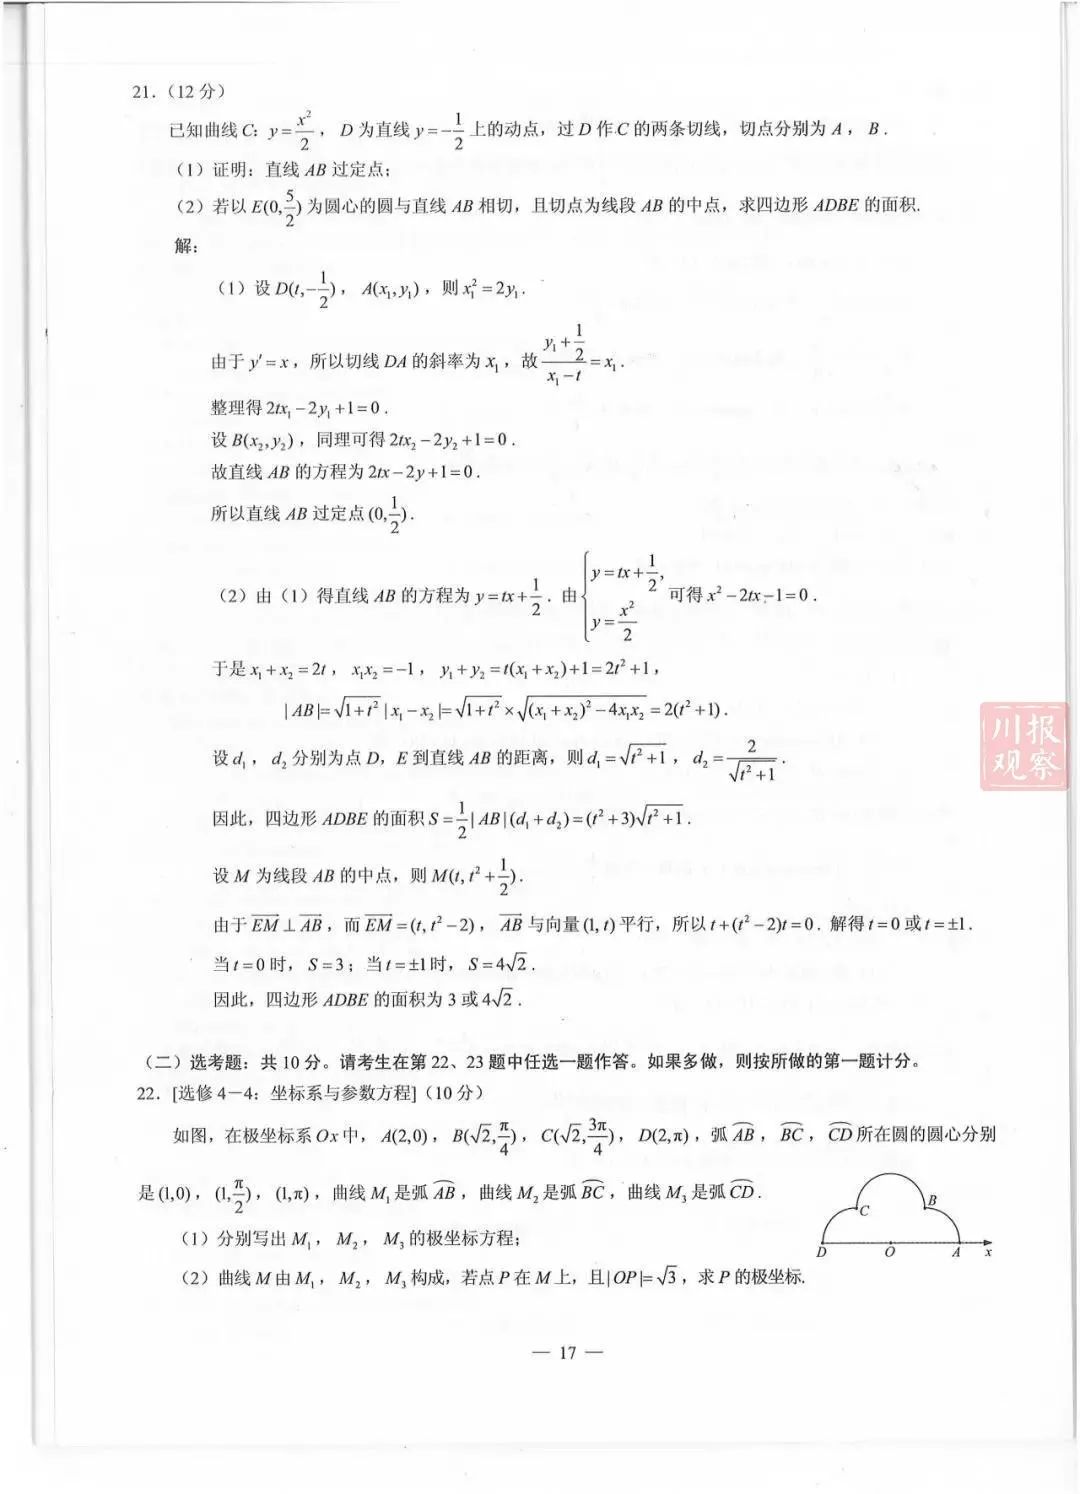 21.（12 分）
已知曲线 C: y = x²/2 ， D 为直线 y = −1/2 上的动点，过 D 作 C 的两条切线，切点分别为 A ， B .
（1）证明：直线 AB 过定点；
（2）若以 E(0, 5/2) 为圆心的圆与直线 AB 相切，且切点为线段 AB 的中点，求四边形 ADBE 的面积.
解：
（1）设 D(t, −1/2) ， A(x₁, y₁) ，则 x₁² = 2y₁ .
由于 y′ = x ，所以切线 DA 的斜率为 x₁ ，故 (y₁ + 1/2)/(x₁ − t) = x₁ .
整理得 2tx₁ − 2y₁ + 1 = 0 .
设 B(x₂, y₂) ，同理可得 2tx₂ − 2y₂ + 1 = 0 .
故直线 AB 的方程为 2tx − 2y + 1 = 0 .
所以直线 AB 过定点 (0, 1/2) .
（2）由（1）得直线 AB 的方程为 y = tx + 1/2 . 由 { y = tx + 1/2, y = x²/2 可得 x² − 2tx − 1 = 0 .
于是 x₁ + x₂ = 2t ， x₁x₂ = −1 ， y₁ + y₂ = t(x₁ + x₂) + 1 = 2t² + 1 ，
|AB| = √(1+t²) |x₁ − x₂| = √(1+t²) × √((x₁ + x₂)² − 4x₁x₂) = 2(t² + 1) .
设 d₁ ， d₂ 分别为点 D，E 到直线 AB 的距离，则 d₁ = √(t² + 1) ， d₂ = 2/√(t² + 1) .
因此，四边形 ADBE 的面积 S = 1/2 |AB| (d₁ + d₂) = (t² + 3)√(t² + 1) .
设 M 为线段 AB 的中点，则 M(t, t² + 1/2) .
由于 EM⃗ ⊥ AB⃗ ，而 EM⃗ = (t, t² − 2) ， AB⃗ 与向量 (1, t) 平行，所以 t + (t² − 2)t = 0 . 解得 t = 0 或 t = ±1 .
当 t = 0 时， S = 3；当 t = ±1 时， S = 4√2 .
因此，四边形 ADBE 的面积为 3 或 4√2 .
（二）选考题：共 10 分。请考生在第 22、23 题中任选一题作答。如果多做，则按所做的第一题计分。
22．[选修 4－4：坐标系与参数方程]（10 分）
如图，在极坐标系 Ox 中， A(2,0) ， B(√2, π/4) ， C(√2, 3π/4) ， D(2, π) ，弧 AB⌢ ， BC⌢ ， CD⌢ 所在圆的圆心分别
是 (1,0) ， (1, π/2) ， (1, π) ，曲线 M₁ 是弧 AB⌢ ，曲线 M₂ 是弧 BC⌢ ，曲线 M₃ 是弧 CD⌢ .
（1）分别写出 M₁ ， M₂ ， M₃ 的极坐标方程；
（2）曲线 M 由 M₁ ， M₂ ， M₃ 构成，若点 P 在 M 上，且 |OP| = √3 ，求 P 的极坐标.
C B
D O A x
— 17 —
川报
观察